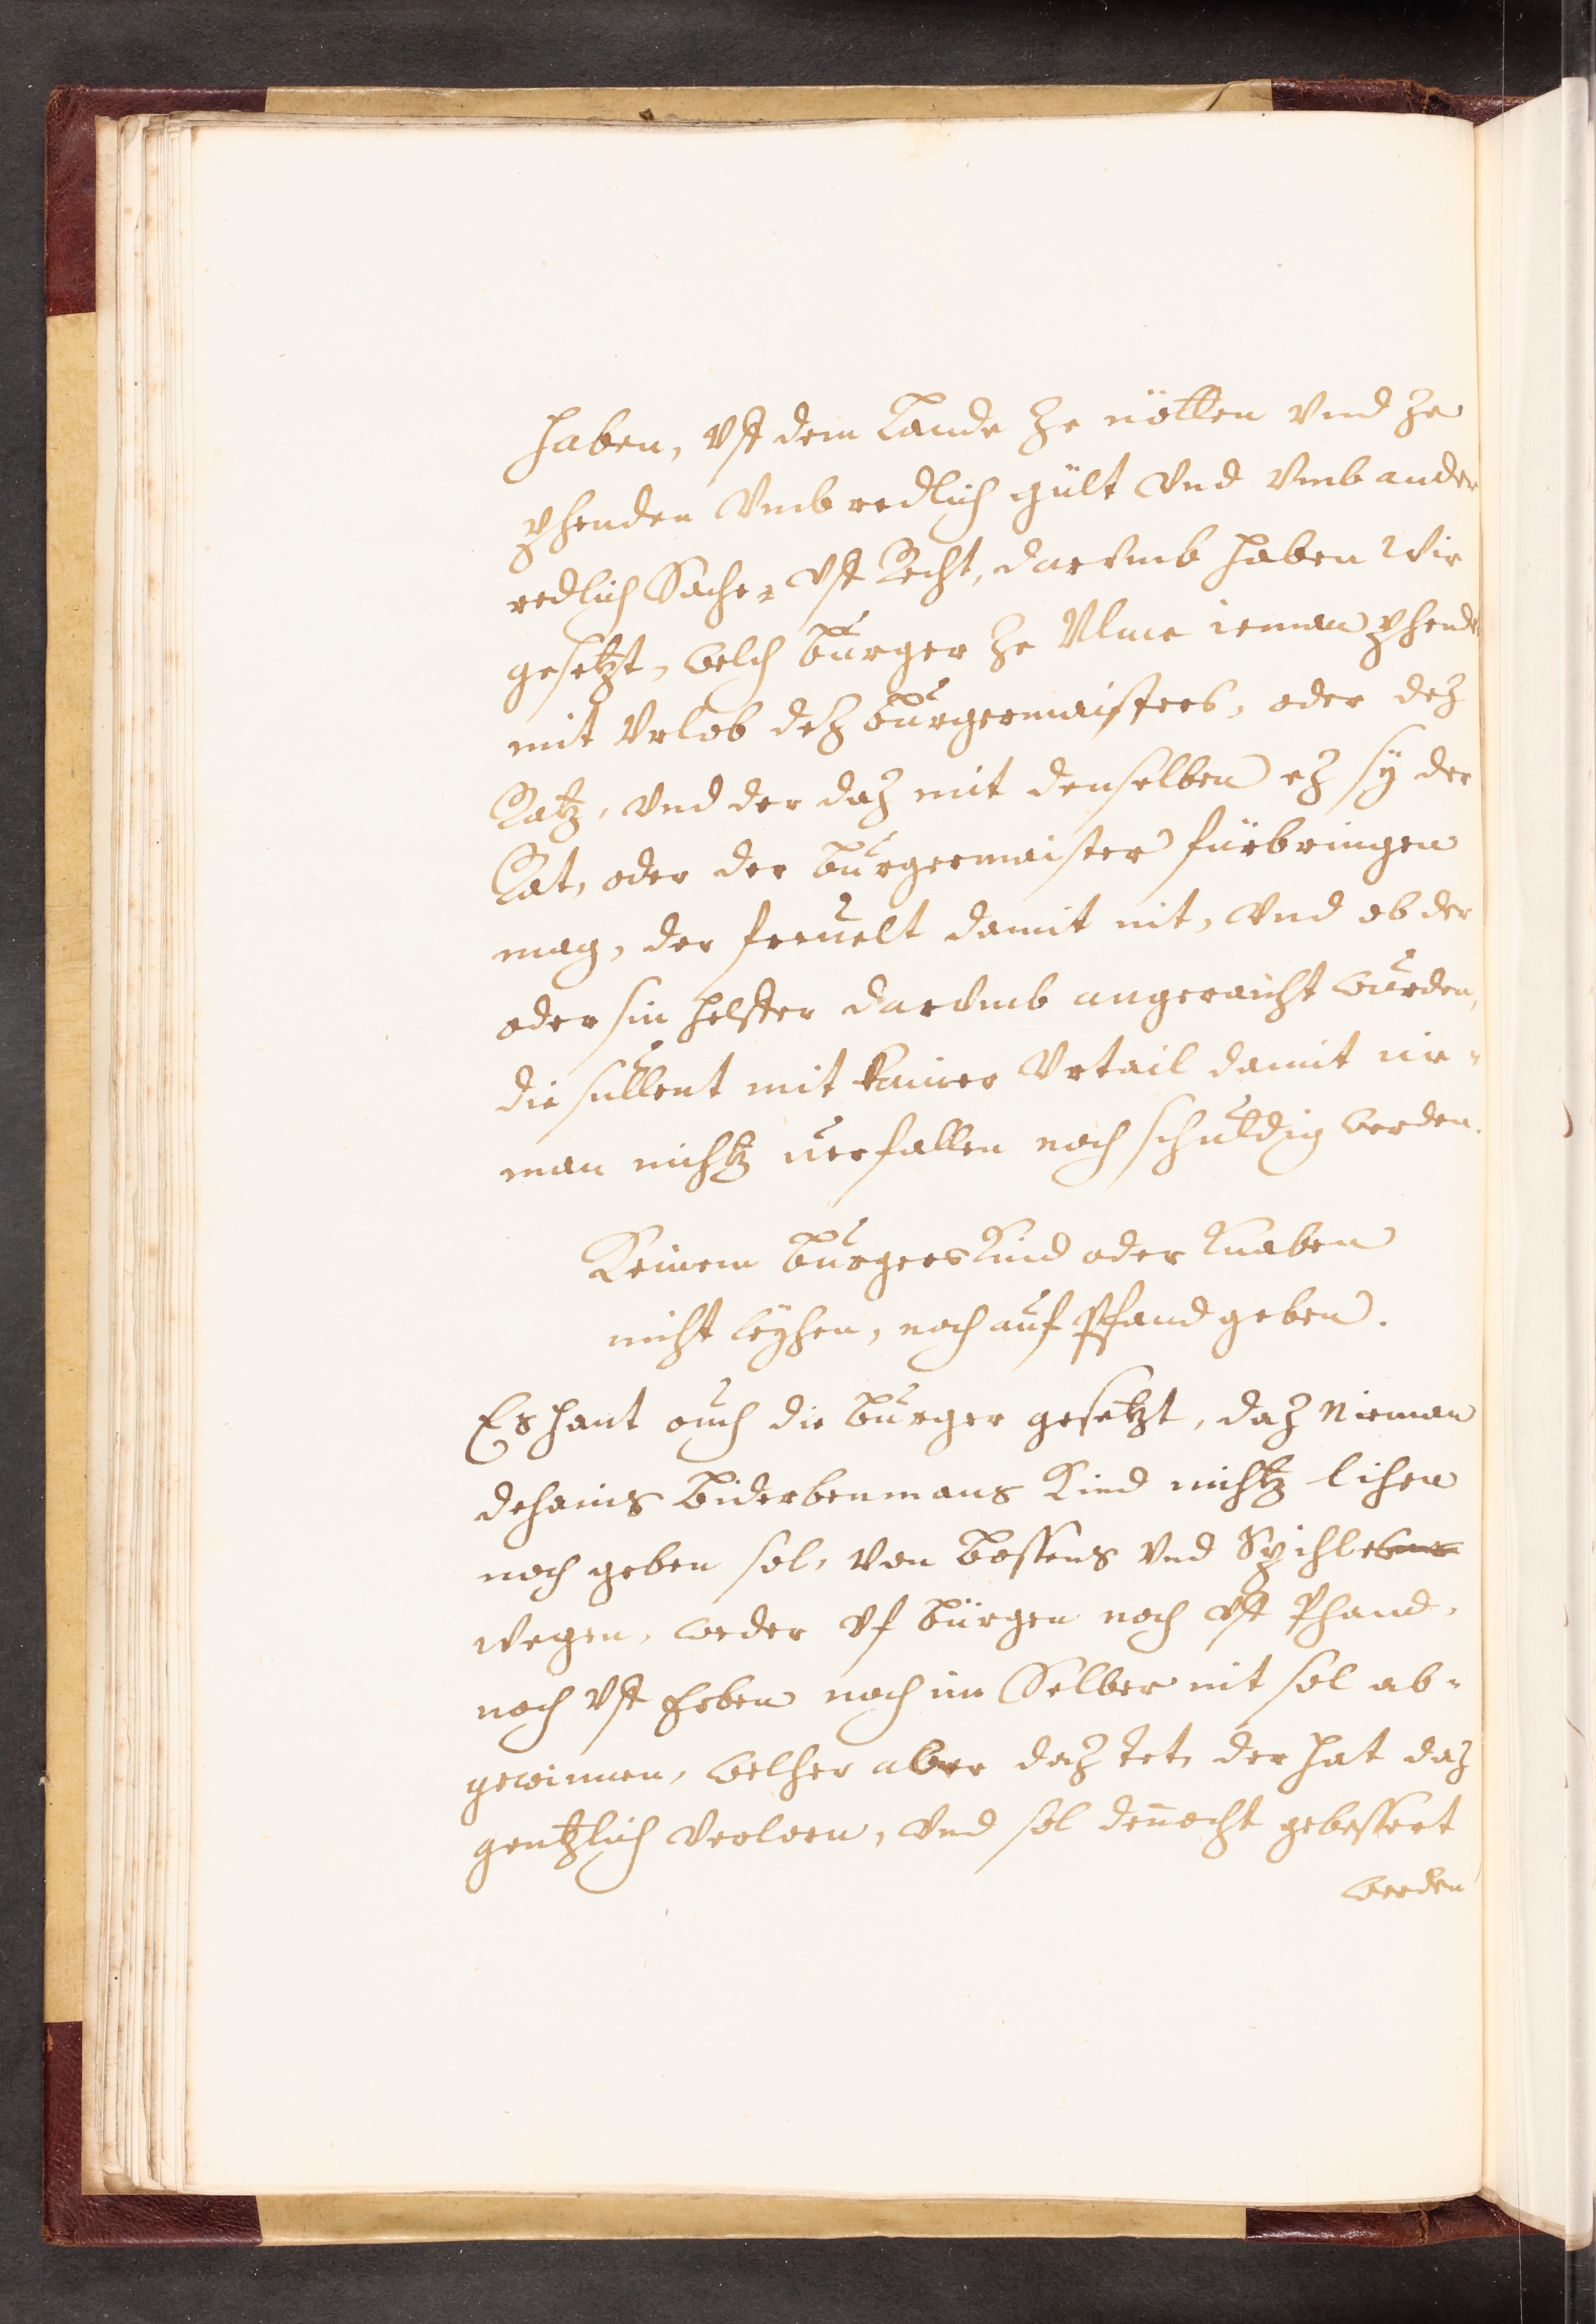 haben, vff dem Lande ze nötten vnd ze
phenden vmb redlich gült vnd vmb ander
redlich Sache, vff Recht, darvmb haben wir
gesetzt, welch burger ze Ulme ieman phende
mit Vrlob dez burgermaisters, oder dez
Ratz, vnd der daz mit denselben ez sÿ der
Rat, oder der burgermaister fürbringen
mag, der freuelt damit nit, vnd ob der
oder sin helffer darvmb angeraicht wurden,
die sullent mit kainer Vrtail damit nie-
man nichtz uerfallen noch schuldig werden.
Keinem burgers Kind oder Knaben
nicht leÿhen, noch auf Pfand geben.
Es hant ouch die burger gesetzt, daz Nieman
dehains Biderbenmans Kind nichtz lihen
noch geben sol, von Bossens vnd Spihles
wegen, weder vf bürgen noch vff Phand,
noch vff Erben noch im Selber nit sol ab-
gewinnen, welher aber daz tet, der hat daz
gentzlich verloren, vnd sol deñocht gebessert
werden